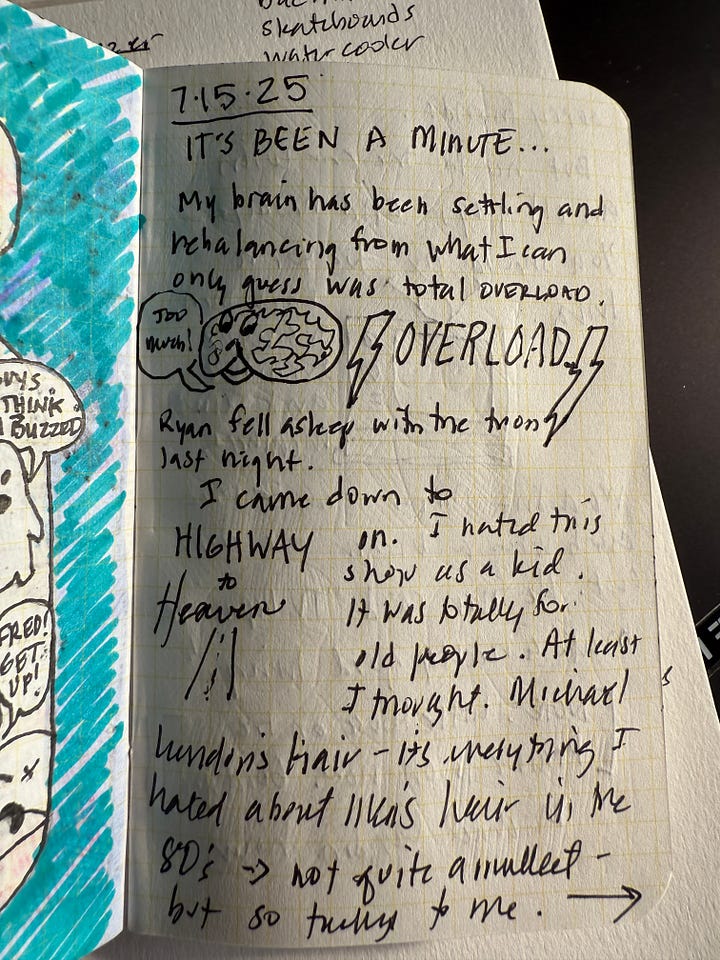 skateboards
water cooler
7.15.25
IT'S BEEN A MINUTE...
My brain has been settling and
rebalancing from what I can
only guess was total OVERLOAD.
TOO
much!
OVERLOAD
Ryan fell asleep with the tv on
last night.
I came down to
HIGHWAY
to
Heaven
on. I hated this
show as a kid.
It was totally for
old people. At least
I thought. Michael
Landon's hair - it's everything I
hated about men's hair in the
80's → not quite a mullet -
but so to me. →
THINK
BUZZED
FRED!
GET
UP!